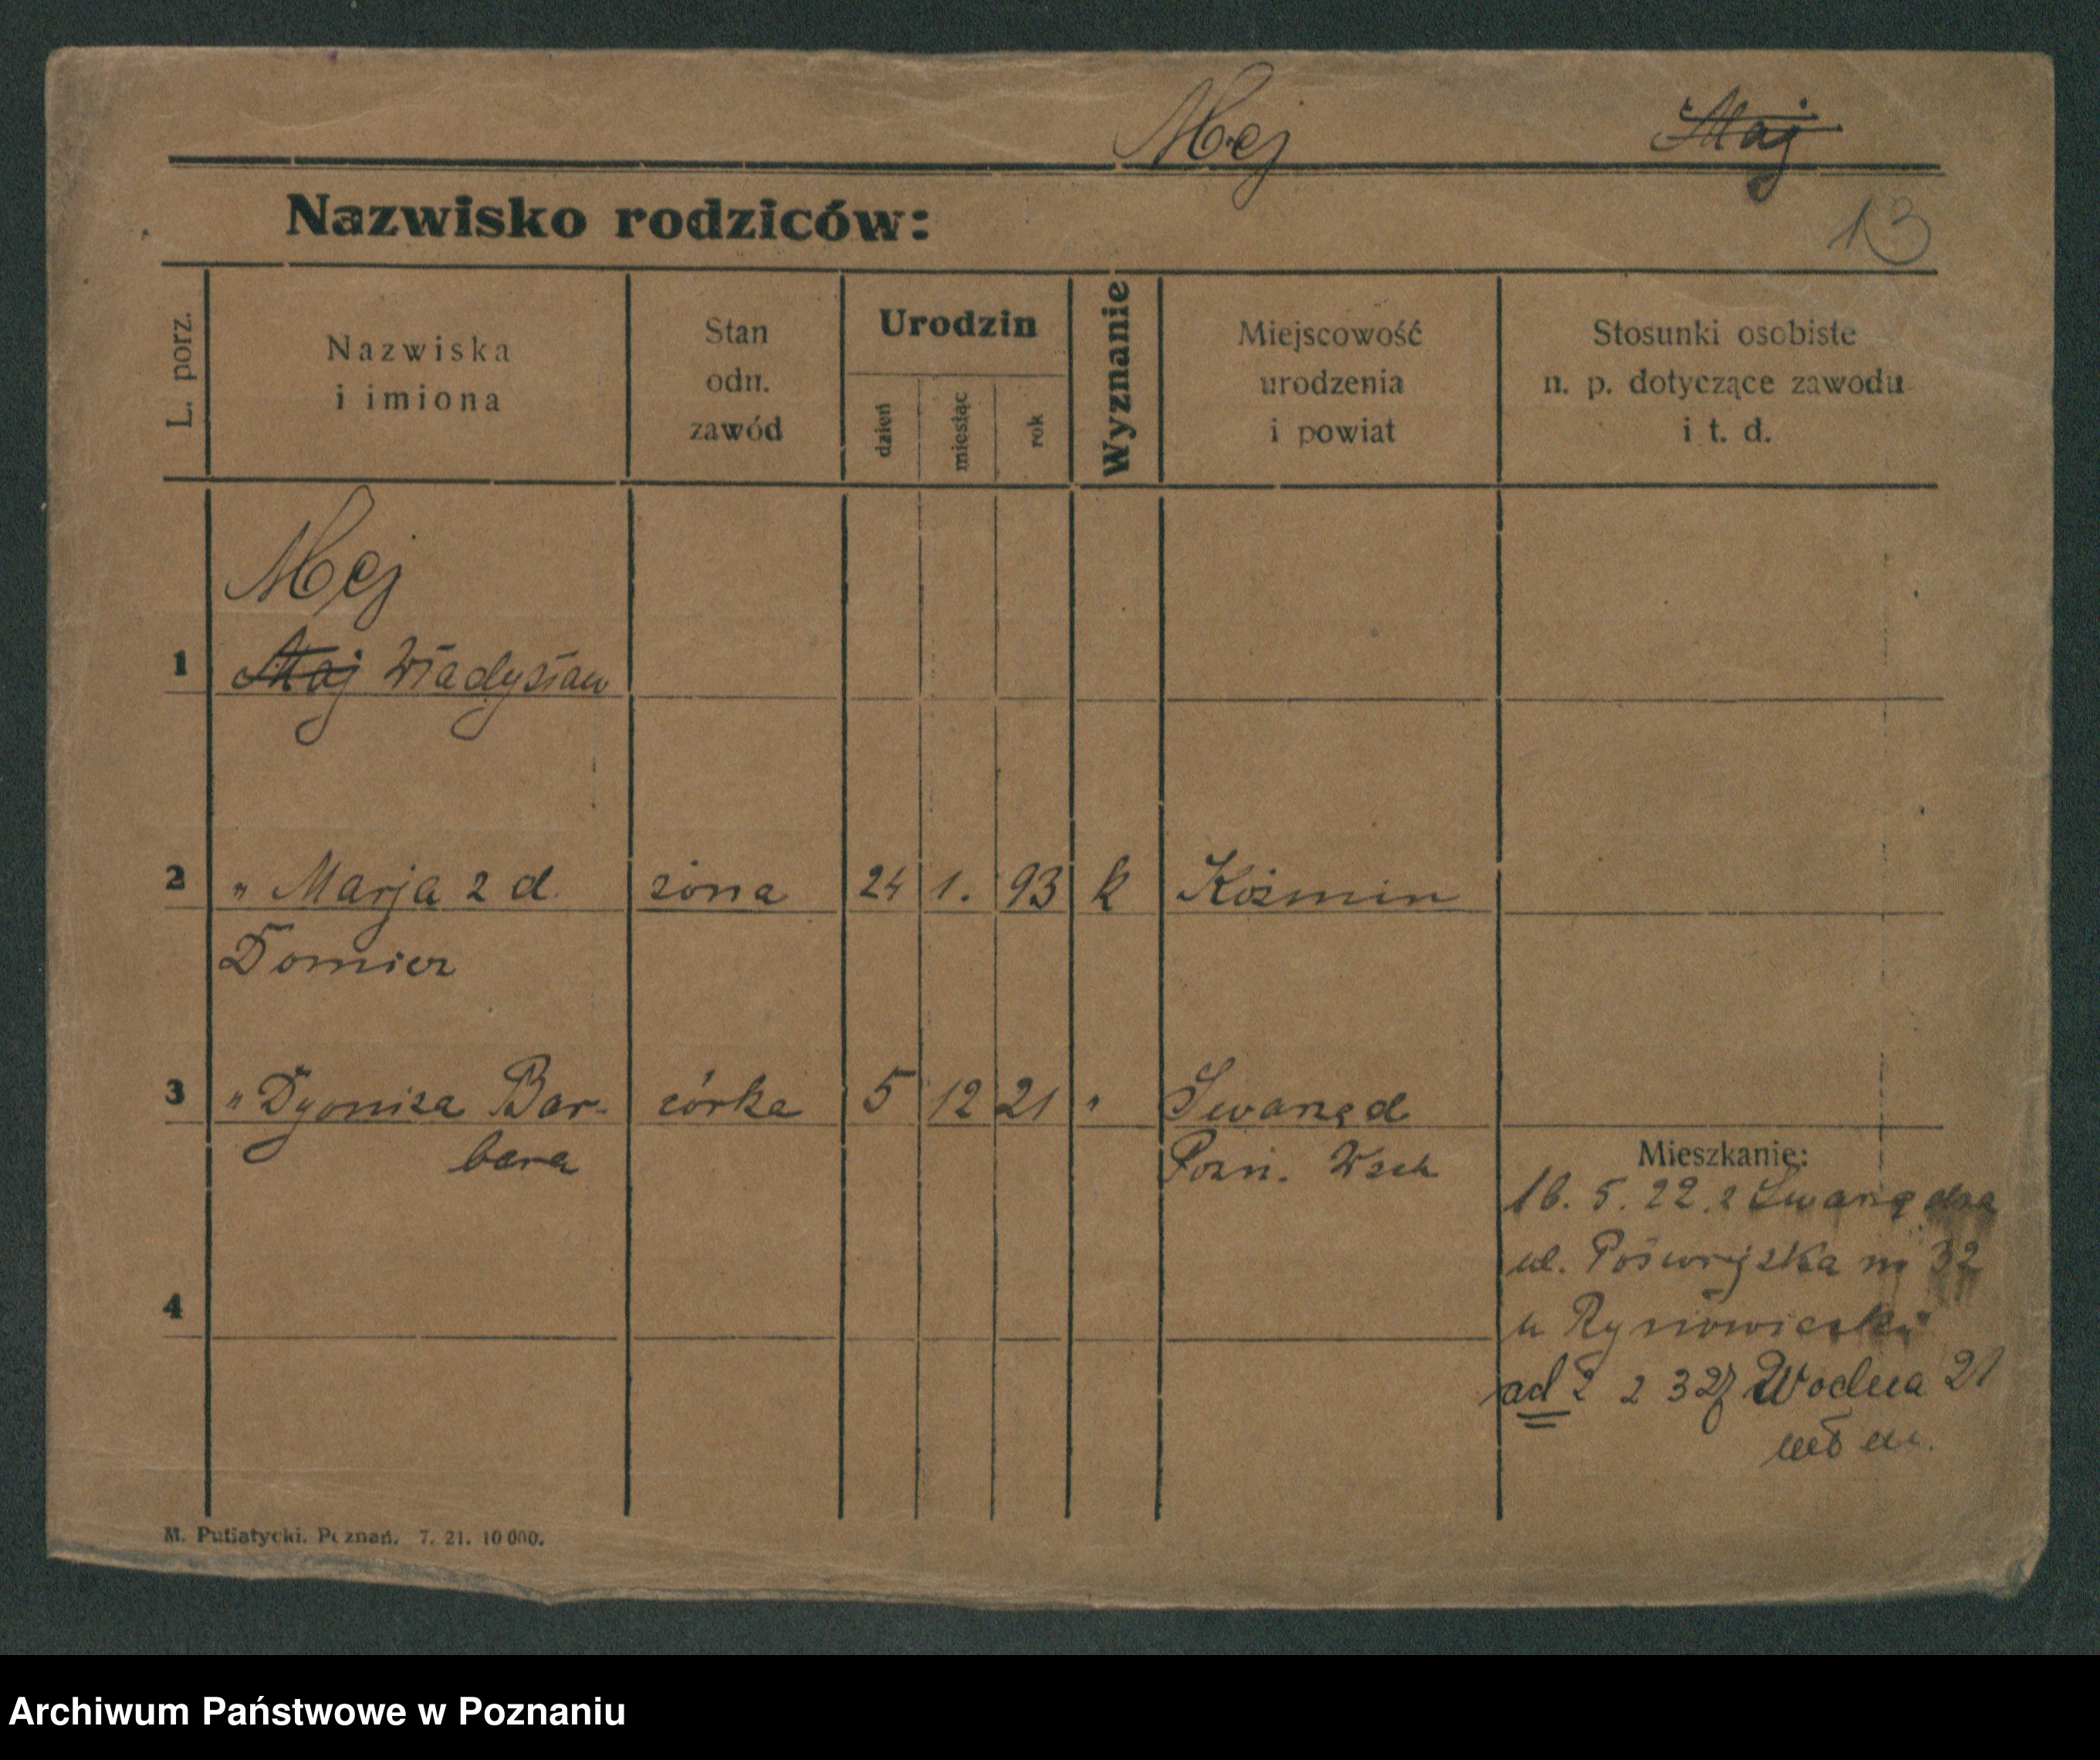 Mej ~~Maj~~
Nazwisko rodziców:
13
L. porz.
Nazwiska
i imiona
Stan
odn.
zawód
Urodzin
dzień
miesiąc
rok
Wyznanie
Miejscowość
urodzenia
i powiat
Stosunki osobiste
n. p. dotyczące zawodu
i t. d.
Mej
1 ~~Maj~~ Władysław
2 „ Marja z d. żona 24 1. 93 k Koźmin
Domier
3 „ Dyoniza Bar- córka 5 12 21 „ Swarzęd
bara Pozn. Wsch
Mieszkanie:
16. 5. 22. z Swarzędza
ul. 32
4
u
ad 2 2 3 27 Wodna 21
M. Putiatycki. Poznań. 7. 21. 10 000.
Archiwum Państwowe w Poznaniu